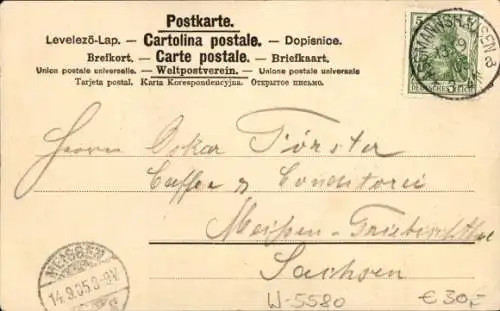 Postkarte.
Levelezö-Lap. — Cartolina postale. — Dopisnice.
Brefkort. — Carte postale. — Briefkaart.
Union postale universelle. — Weltpostverein. — Unione postale universale.
Tarjeta postal. Karta Korespondencyjna. Открытое письмо.
5
DEUTSCHES REICH
ASSMANNSHAUSEN a
13 9
Herrn Oskar Förster
Caffee & Conditorei
Meißen-Triebischthal
Sachsen
MEISSEN
14.9.05. 8-9V.
W-5580
€ 30,-